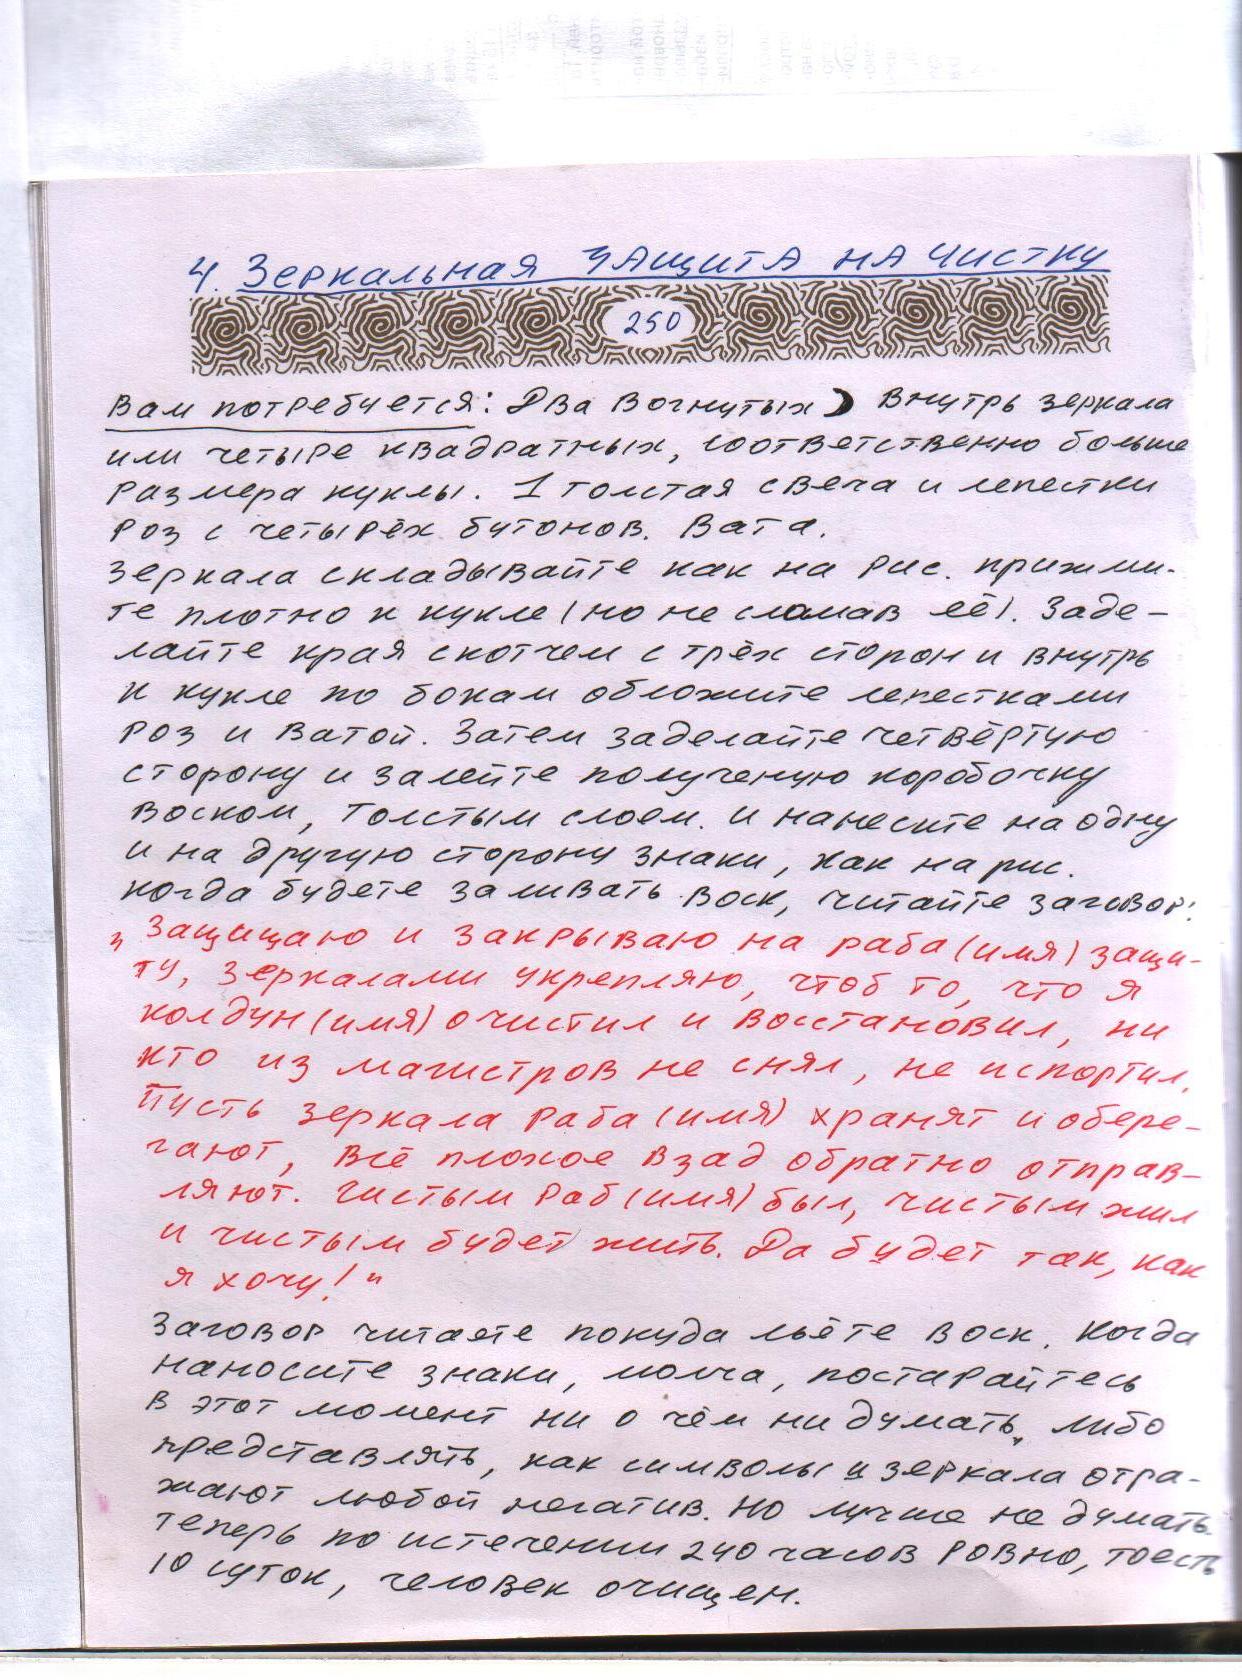 4. Зеркальная защита на чистку
250
Вам потребуется: Два вогнутых внутрь зеркала
или четыре квадратных, соответственно больше
размера куклы. 1 толстая свеча и лепестки
роз с четырёх бутонов. Вата.
Зеркала складывайте как на рис. прижми-
те плотно к кукле (но не сломав её). Заде-
лайте края скотчем с трёх сторон и внутрь
к кукле по бокам обложите лепестками
роз и ватой. Затем заделайте четвёртую
сторону и залейте полученую коробочку
воском, толстым слоем. и нанесите на одну
и на другую сторону знаки, как на рис.
когда будете заливать воск, читайте заговор:
„Защищаю и закрываю на раба (имя) защи-
ту, зеркалами укрепляю, чтоб то, что я
колдун (имя) очистил и восстановил, ни
кто из магистров не снял, не испортил.
Пусть зеркала раба (имя) хранят и обере-
гают, всё плохое взад обратно отправ-
ляют. Чистым раб (имя) был, чистым жил
и чистым будет жить. Да будет так, как
я хочу!"
Заговор читаете покуда льёте воск. Когда
наносите знаки, молча, постарайтесь
в этот момент ни о чём ни думать, либо
представлять, как символы и зеркала отра-
жают любой негатив. Но лучше не думать.
Теперь по истечении 240 часов ровно, тоесть
10 суток, человек очищен.